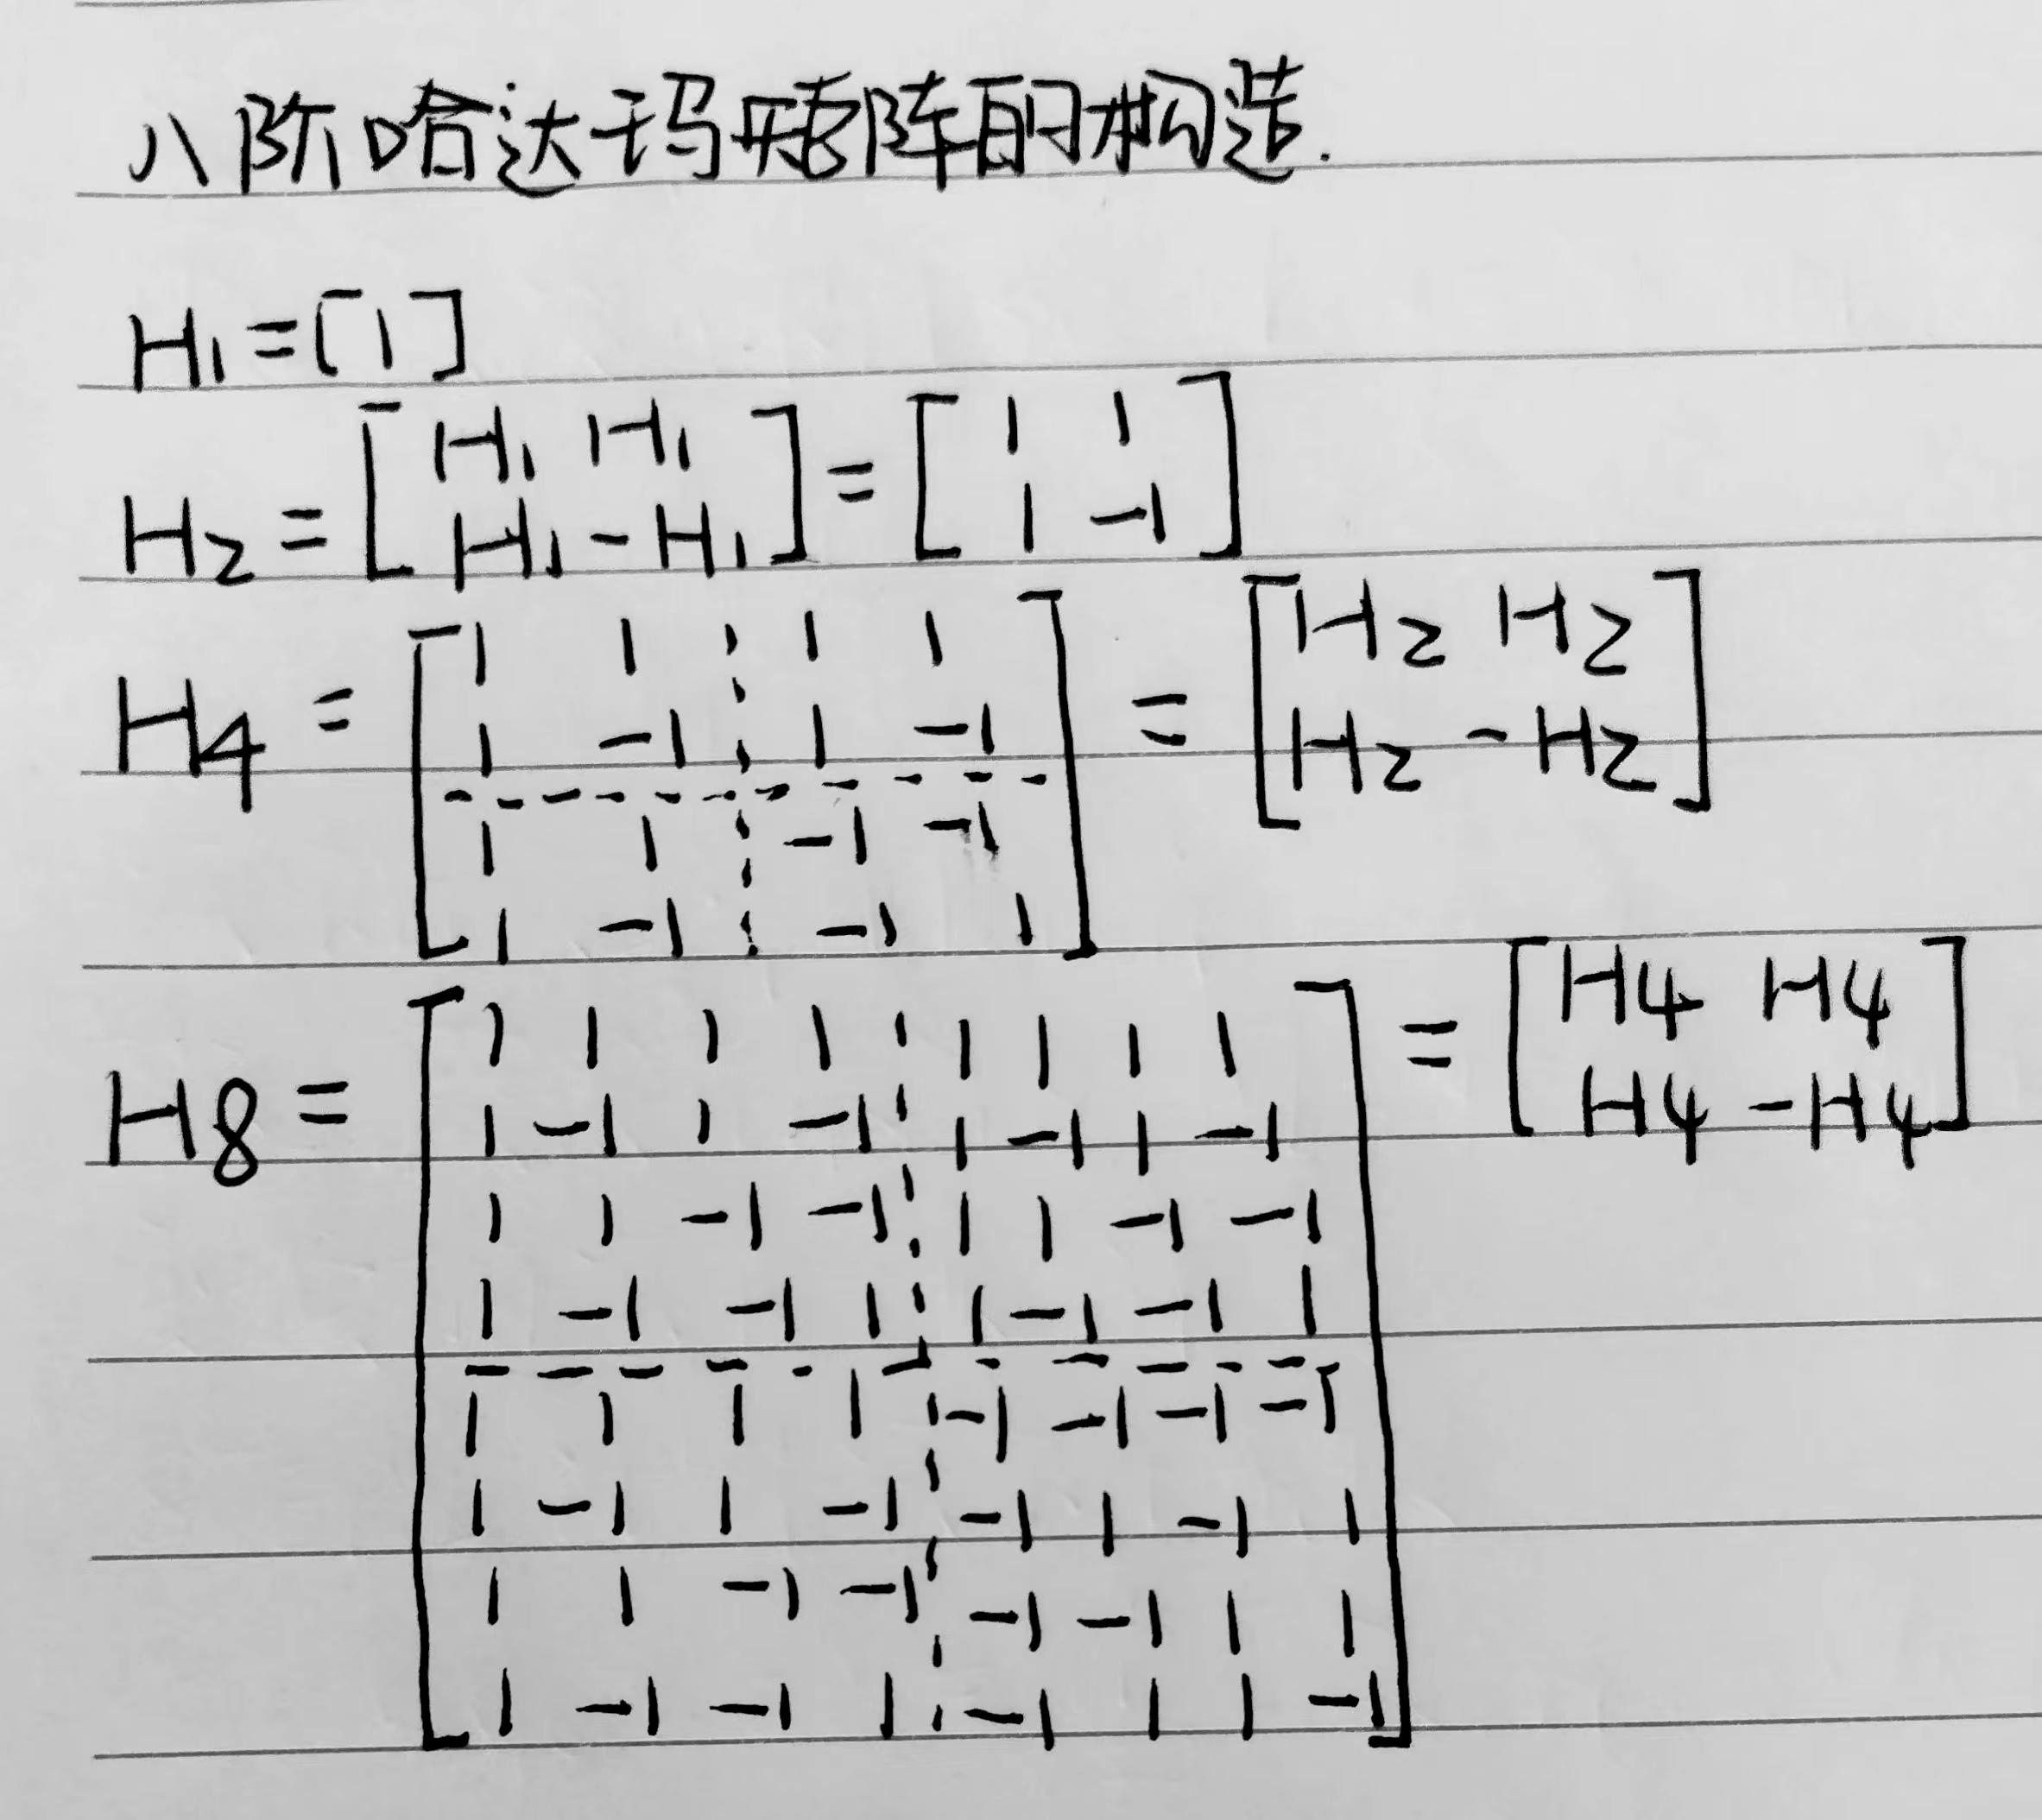 八阶哈达玛矩阵的构造.
H1=[1]
H2=[H1 H1
H1 -H1]=[1 1
1 -1]
H4=[1 1 1 1
1 -1 1 -1
1 1 -1 -1
1 -1 -1 1]=[H2 H2
H2 -H2]
H8=[1 1 1 1 1 1 1 1
1 -1 1 -1 1 -1 1 -1
1 1 -1 -1 1 1 -1 -1
1 -1 -1 1 1 -1 -1 1
1 1 1 1 -1 -1 -1 -1
1 -1 1 -1 -1 1 -1 1
1 1 -1 -1 -1 -1 1 1
1 -1 -1 1 -1 1 1 -1]=[H4 H4
H4 -H4]